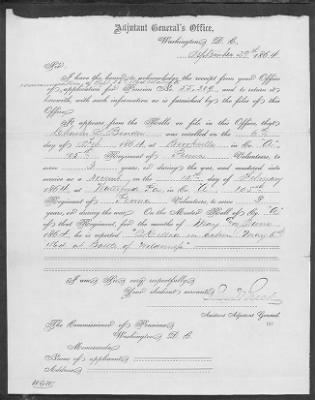 Adjutant General's Office,
Washington, D. C.
September 29th, 1864
Sir:
I have the honor to acknowledge the receipt from your Office
of application for Pension No. 55,289, and to return it
herewith, with such information as is furnished by the files of this
Office.
It appears from the Rolls on file in this Office, that
Charles was enrolled on the 6th
day of Feb, 1864, at Brookville in Co. "G",
105th Regiment of Penna Volunteers, to
serve 3 years, or during the war, and mustered into
service as a Recruit on the 15th day of February
1864, at Pa, in Co. "G", 105th
Regiment of Penna Volunteers, to serve 3
years, or during the war. On the Muster Roll of Co. "G"
of that Regiment, for the months of May & June
1864, he is reported "Killed in action May 6th
1864 at Battle of Wilderness"
I am, Sir, very respectfully,
Your obedient servant,
Assistant Adjutant General.
The Commissioner of Pensions
Washington, D. C.
Memoranda:
Name of applicant
Address